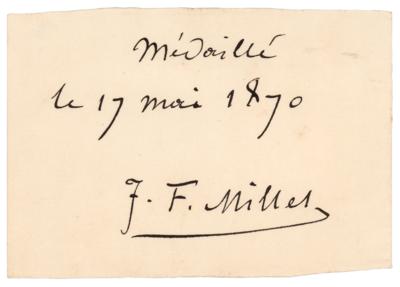 Médaillé
le 17 mai 1870
J. F. Millet